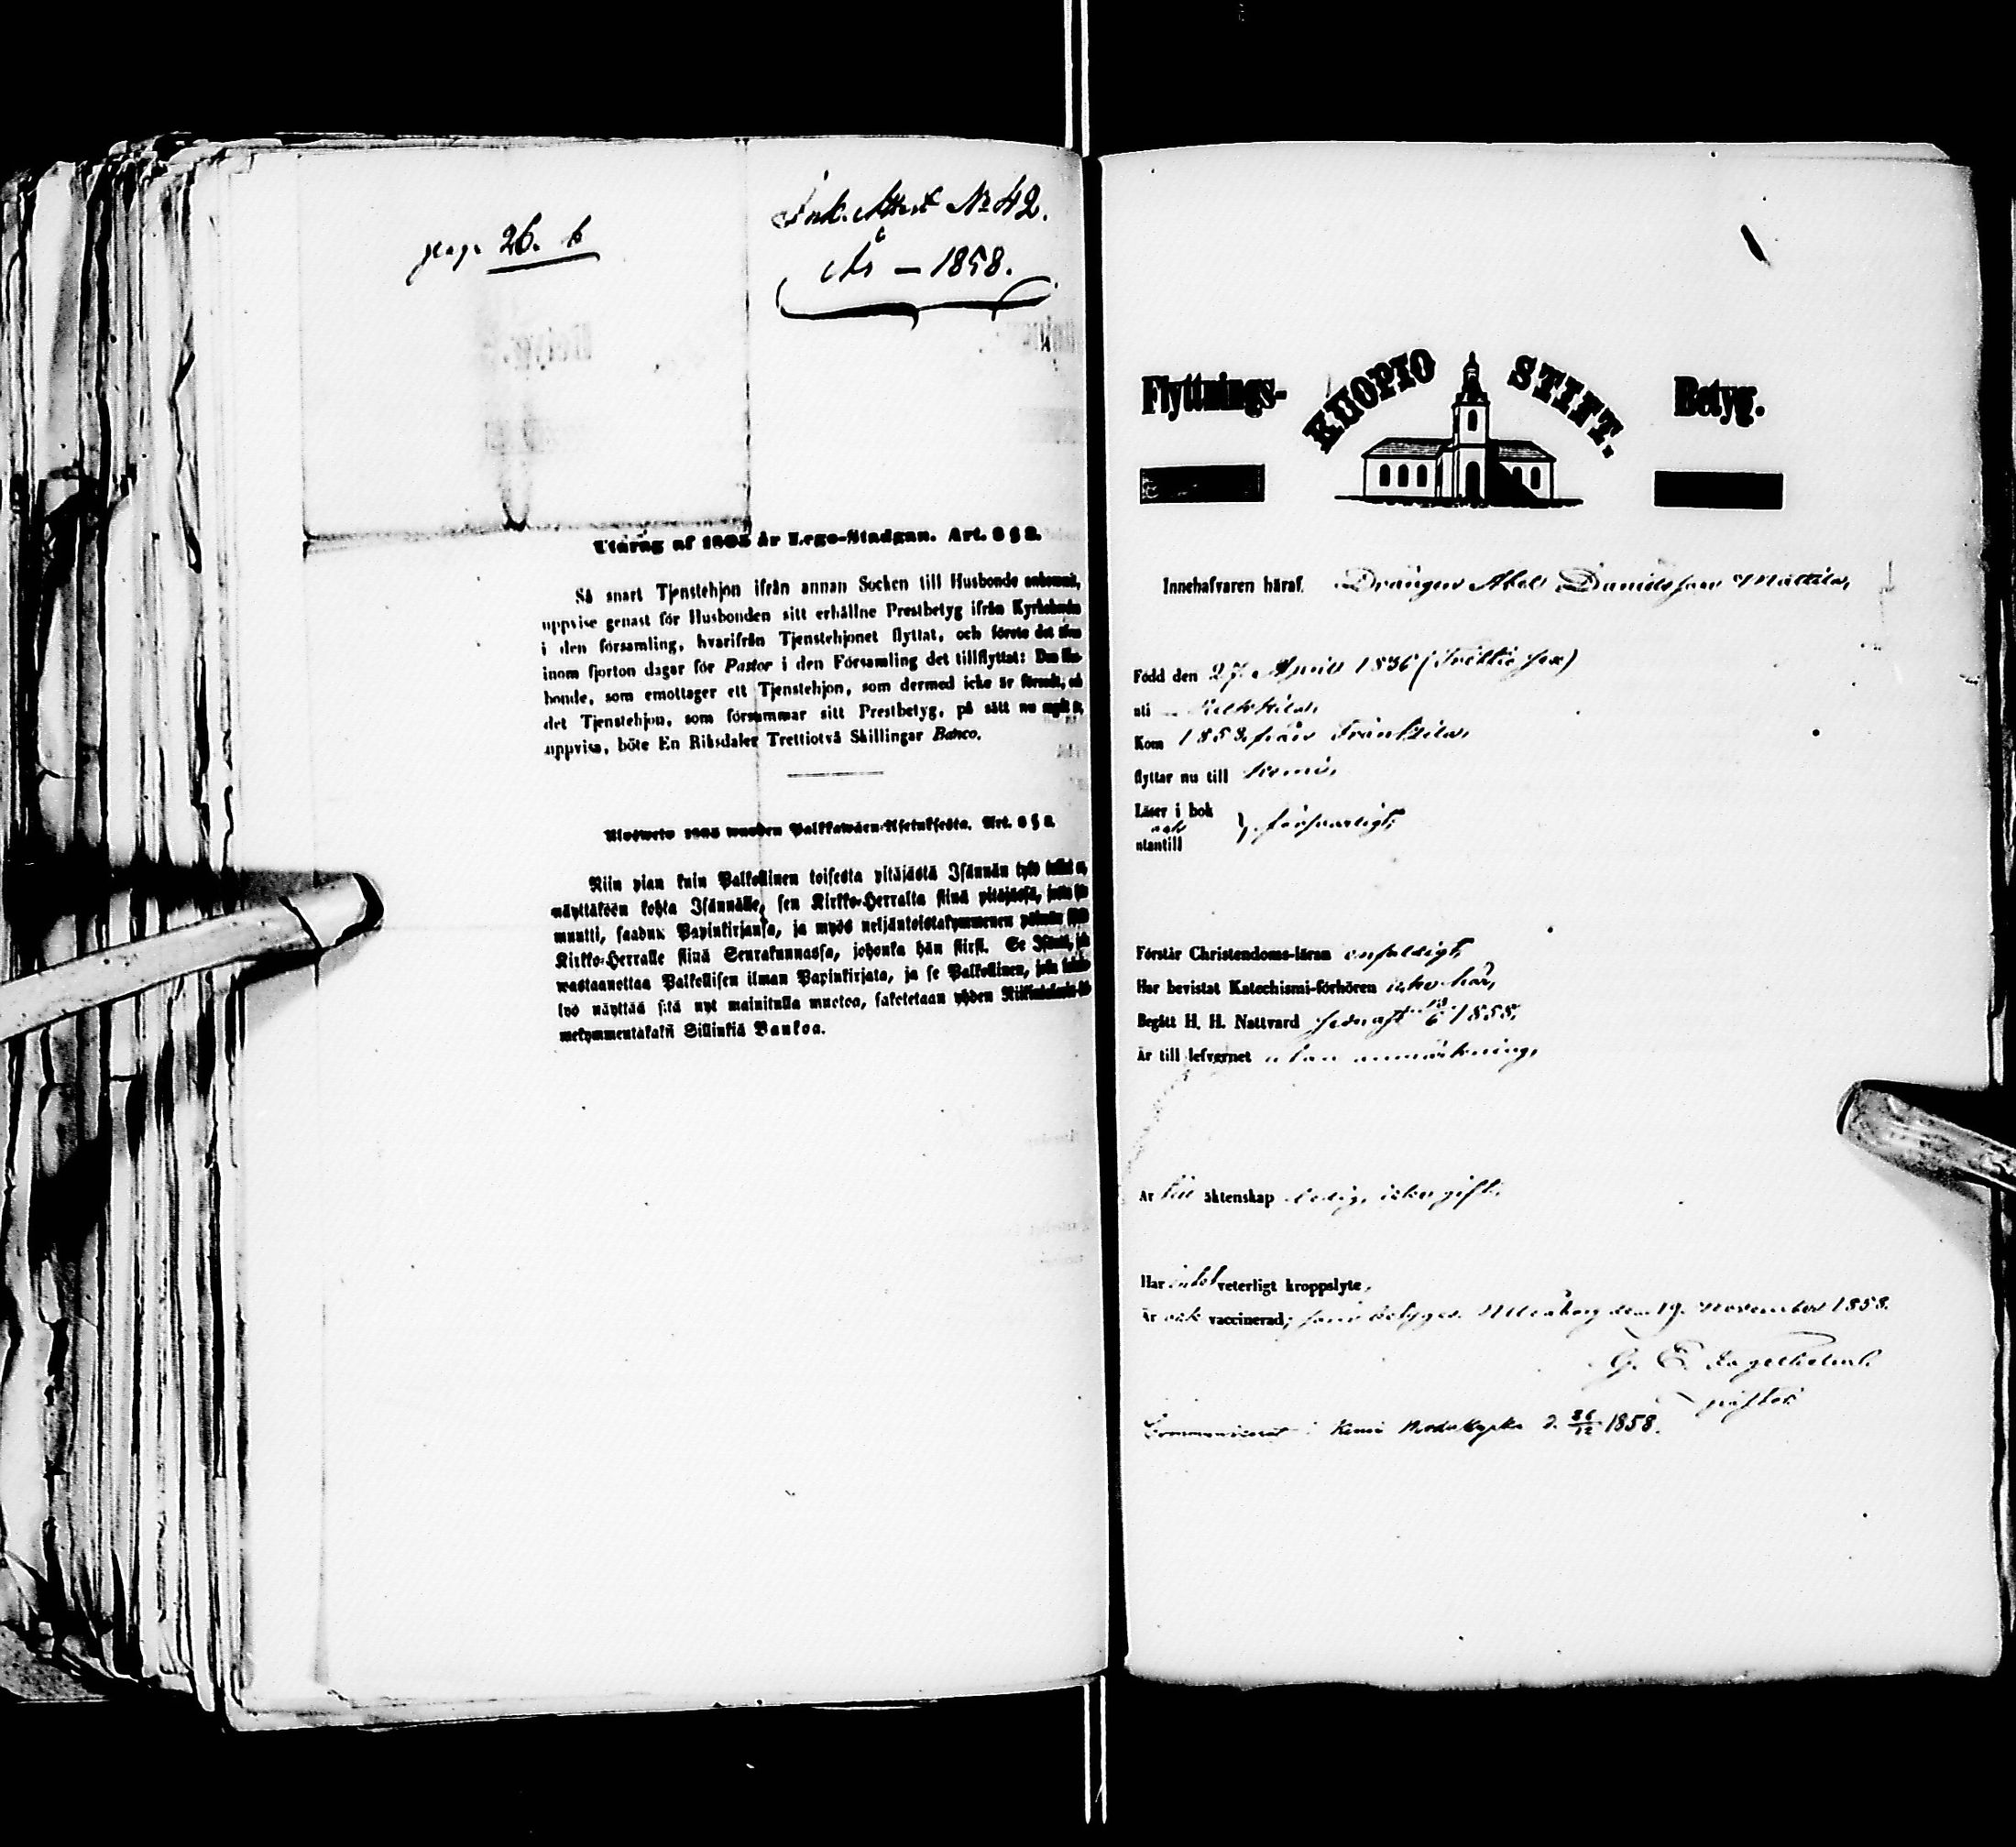 pag. 26. b
Ink. Attest No 42.
År — 1858.
Utdrag af 1805 år Lego-Stadgan. Art. 6 § 2.
Så snart Tjenstehjon ifrån annan Socken till Husbonde ankommit,
uppvise genast för Husbonden sitt erhållne Prestbetyg ifrån
i den församling, hvarifrån Tjenstehjonet flyttat, och förete det
inom fjorton dagar för Pastor i den Församling det tillflyttat: Den
bonde, som emottager ett Tjenstehjon, som dermed icke är försedt, och
det Tjenstehjon, som försummar sitt Prestbetyg, på sätt nu
uppvisa, böte En Riksdaler Trettiotvå Skillingar Banco.
Ulosweto 1805 wuoden Palkkawäen-Asetuksesta. Art. 6 § 2.
Niin pian kuin Palkollinen toisesta pitäjästä Isännän työ
näyttäköön kohta Isännälle, sen Kirkko-Herralta siinä pitäjässä,
muutti, saadun Papinkirjansa, ja myös neljäntoistakymmenen päiwän
Kirkko-Herralle siinä Seurakunnassa, johonka hän siirsi. Se
wastaanottaa Palkollisen ilman Papinkirjata, ja se Palkollinen, joka
lyö näyttää sitä nyt mainitulla muotoa, saketetaan yhden
mekymmentäkaksi Sillinkiä Bankoa.
Flyttnings- KUOPIO STIFT. Betyg.
Innehafvaren häraf, Drängen Abel Danielsson Mattila,
Född den 27 April 1836 (Trettio sex)
uti
Kom 1858 från Frantsila,
flyttar nu till Kemi,
Läser i bok
och } försvarligt,
utantill
Förstår Christendoms-läran enfaldigt,
Har bevistat Katechismi-förhören icke här,
Begått H. H. Nattvard sednast 13/6 1858,
Är till lefvernet utan anmärkning,
Är till äktenskap ledig, icke gift,
Har intet veterligt kroppslyte,
Är ock vaccinerad; som betygas. Uleåborg den 19. November 1858.
G. E.
Communicerat i Kemi Moderkyrka d. 26/12 1858.